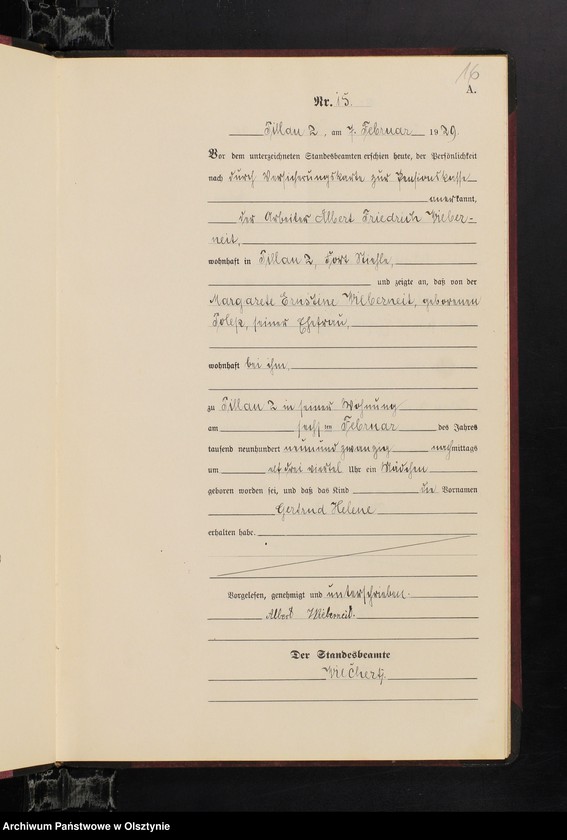 16
A.
Nr. 15.
Pillau 2, am 7. Februar 1929
Vor dem unterzeichneten Standesbeamten erschien heute, der Persönlichkeit
nach durch Versicherungskarte zur Pensionskasse
anerkannt,
der Arbeiter Albert Friedrich Wilber-
neit,
wohnhaft in Pillau 2, Fort Stiehle,
und zeigte an, daß von der
Margarete Ernstine Wilberneit, geborenen
seiner Ehefrau,
wohnhaft bei ihm,
zu Pillau 2 in seiner Wohnung
am sechsten Februar des Jahres
tausend neunhundert neunundzwanzig nachmittags
um elf drei viertel Uhr ein Mädchen
geboren worden sei, und daß das Kind die Vornamen
Gertrud Helene
erhalten habe.
Vorgelesen, genehmigt und unterschrieben.
Albert Wilberneit.
Der Standesbeamte
Archiwum Państwowe w Olsztynie